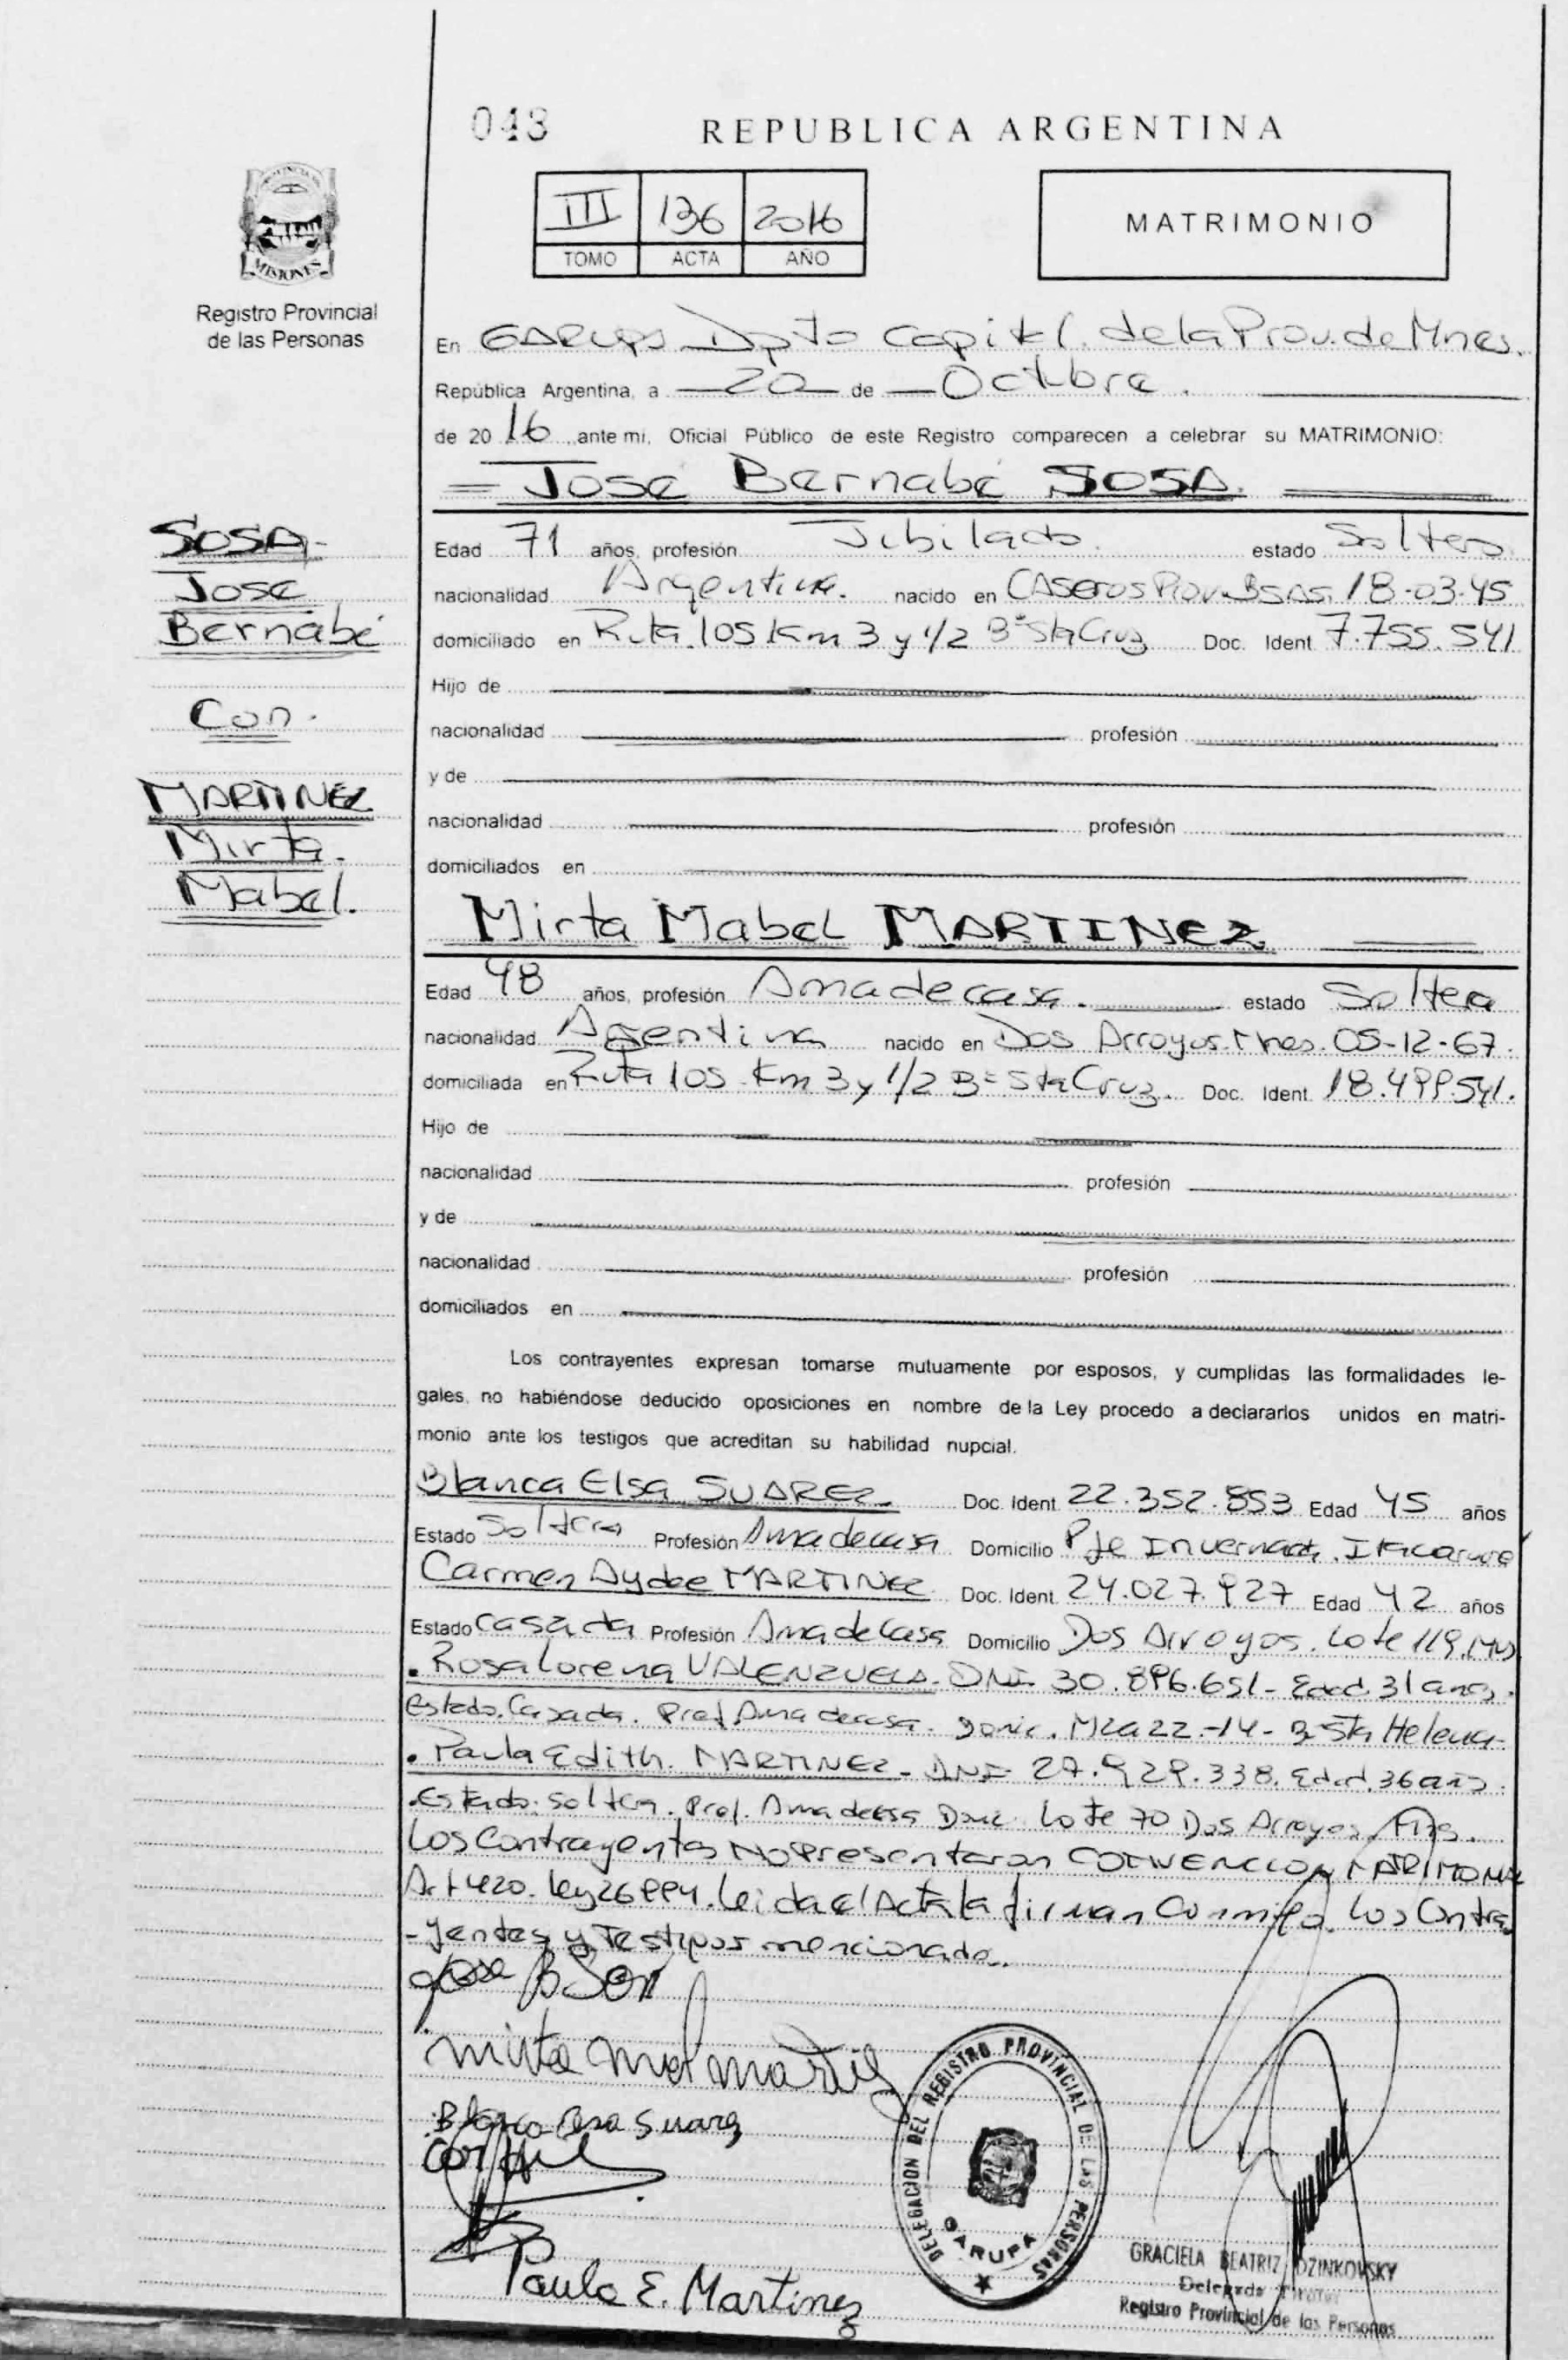 043
REPUBLICA ARGENTINA
III 136 2016
TOMO ACTA AÑO
MATRIMONIO
MISIONES
Registro Provincial
de las Personas
En GARUPA Dpto Capital de la Prov. de Mnes.
República Argentina, a 20 de Octubre.
de 2016 ante mi, Oficial Público de este Registro comparecen a celebrar su MATRIMONIO:
José Bernabé SOSA.
SOSA
José
Bernabé
Con.
MARTINEZ
Mirta.
Mabel.
Edad 71 años, profesión Jubilado. estado Soltero
nacionalidad Argentina. nacido en CAseros Prov. BsAs. 18-03-45
domiciliado en Ruta 105 Km 3 y 1/2 Bº Sta Cruz Doc. Ident. 7.755.541
Hijo de
nacionalidad profesión
y de
nacionalidad profesión
domiciliados en
Mirta Mabel MARTINEZ
Edad 48 años, profesión Ama de casa. estado Soltera
nacionalidad Argentina nacido en Dos Arroyos. Mnes. 05-12-67.
domiciliada en Ruta 105 Km 3 y 1/2 Bº Sta Cruz. Doc. Ident. 18.499.541.
Hijo de
nacionalidad profesión
y de
nacionalidad profesión
domiciliados en
Los contrayentes expresan tomarse mutuamente por esposos, y cumplidas las formalidades le-
gales, no habiéndose deducido oposiciones en nombre de la Ley procedo a declararlos unidos en matri-
monio ante los testigos que acreditan su habilidad nupcial.
Blanca Elsa SUAREZ Doc. Ident. 22.352.853 Edad 45 años
Estado Soltera Profesión Ama de casa Domicilio Pje Invernada. Itacaruaré
Carmen Aydee MARTINEZ Doc. Ident. 24.027.927 Edad 42 años
Estado Casada Profesión Ama de Casa Domicilio Dos Arroyos. Lote 119.
. Rosa Lorena VALENZUELA - DNI 30.896.651 - Edad 31 años.
Estado. Casada. Prof. Ama de casa. Domic. Mza 22-14- Bº Sta Helena-
. Paula Edith MARTINEZ - DNI 27.929.338. Edad. 36 años.
. Estado. Soltera. Prof. Ama de casa Domic. Lote 70 Dos Arroyos.
Los Contrayentes No Presentaron CONVENCION MATRIMONIAL
Art 420. Ley 26994. Leida el Acta la firman Conmigo. Los Contra
- yentes y Testigos mencionados.
Jose B Sosa
Blanca Elsa Suarez
Paula E. Martinez
DELEGACION DEL REGISTRO PROVINCIAL DE LAS PERSONAS
GARUPA
GRACIELA BEATRIZ OZINKOVSKY
Delegada Titular
Registro Provincial de las Personas